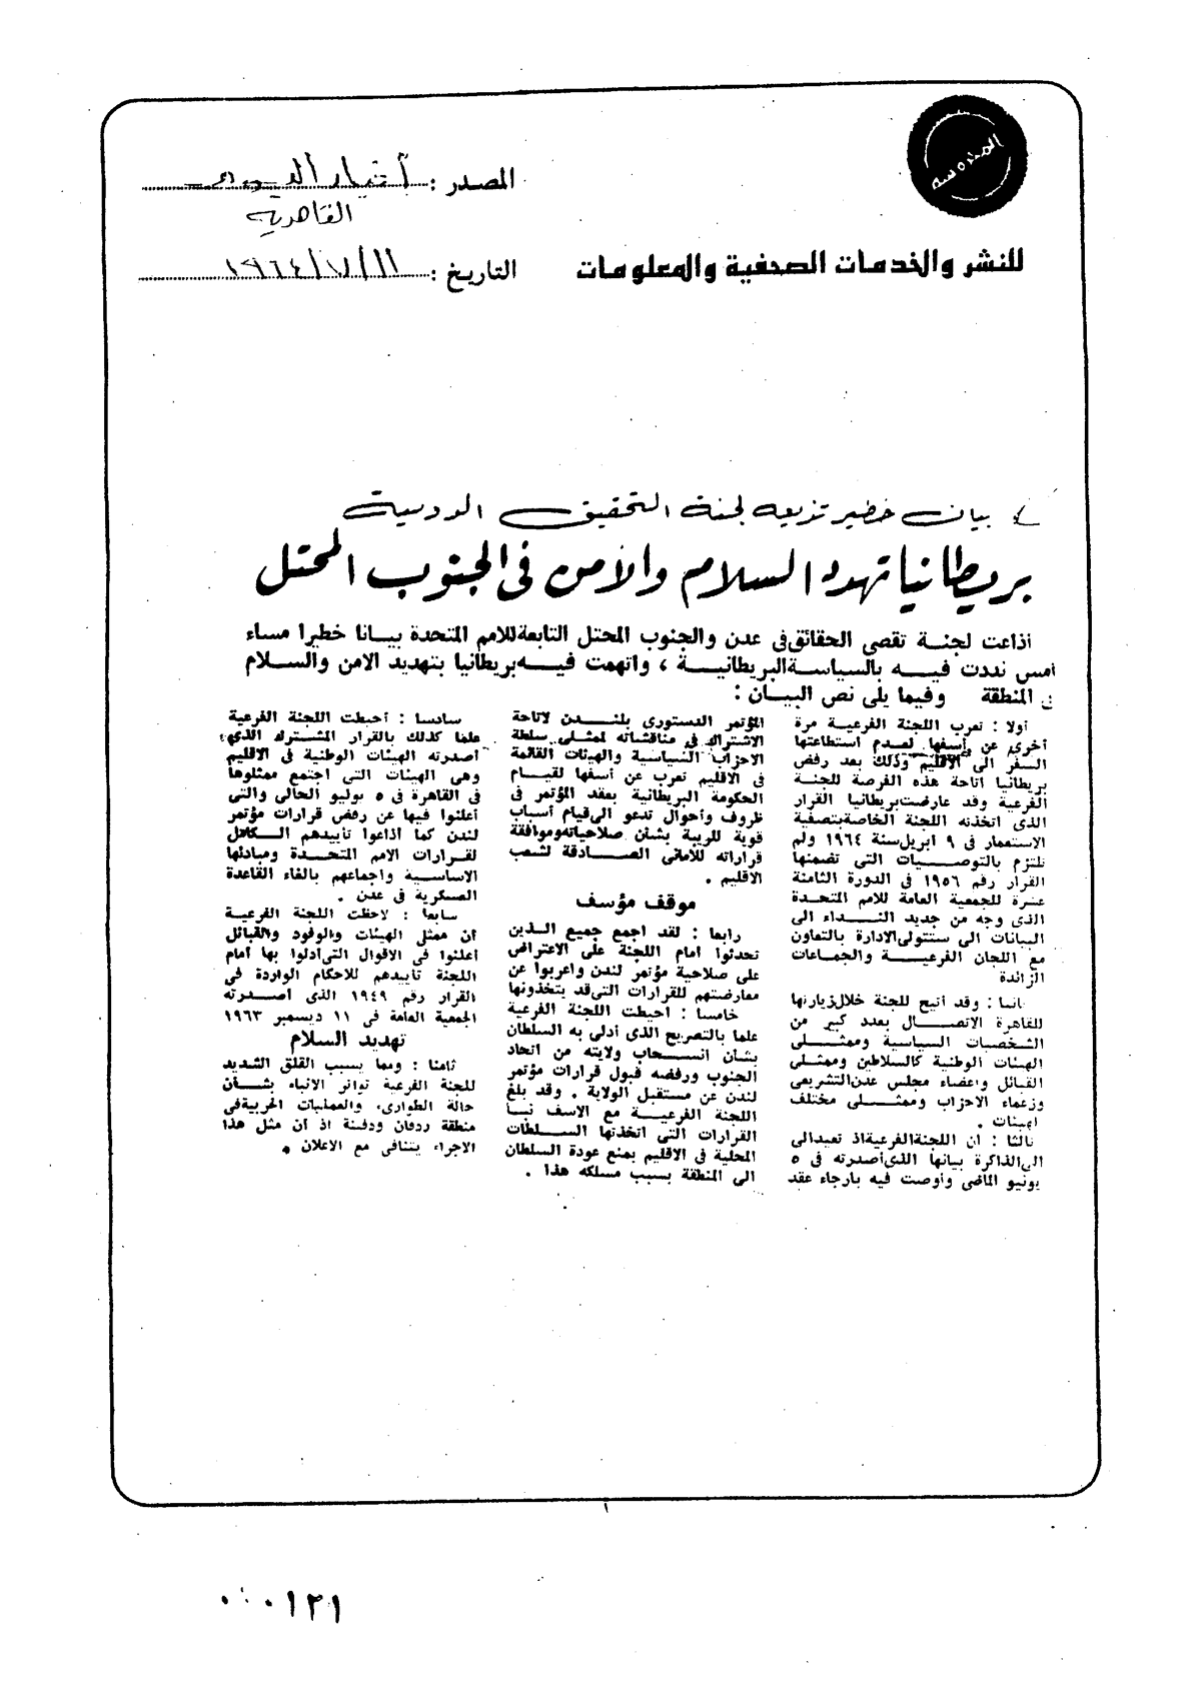 المحروسة
المصدر : أخبار اليوم
القاهرية
للنشر والخدمات الصحفية والمعلومات
التاريخ : ١١/٧/١٩٦٤
بيان خطير تذيعه لجنة التحقيق الدولية
بريطانيا تهدد السلام والأمن في الجنوب المحتل
أذاعت لجنة تقصي الحقائق في عدن والجنوب المحتل التابعة للامم المتحدة بيانا خطيرا مساء
امس نددت فيه بالسياسة البريطانية ، واتهمت فيه بريطانيا بتهديد الامن والسلام
في المنطقة وفيما يلى نص البيان :
أولا : تعرب اللجنة الفرعية مرة
أخرى عن أسفها لعدم استطاعتها
السفر الى الاقليم وذلك بعد رفض
بريطانيا اتاحة هذه الفرصة للجنة
الفرعية وقد عارضت بريطانيا القرار
الذى اتخذته اللجنة الخاصة بتصفية
الاستعمار فى ٩ ابريل سنة ١٩٦٤ ولم
تلتزم بالتوصيات التى تضمنها
القرار رقم ١٩٥٦ فى الدورة الثامنة
عشرة للجمعية العامة للامم المتحدة
الذى وجه من جديد النداء الى
البيانات الى ستتولى الادارة بالتعاون
مع اللجان الفرعية والجماعات
الزائدة
ثانيا : وقد أتيح للجنة خلال زيارتها
للقاهرة الاتصال بعدد كبير من
الشخصيات السياسية وممثلى
الهيئات الوطنية كالسلاطين وممثلى
القبائل واعضاء مجلس عدن التشريعى
وزعماء الاحزاب وممثلى مختلف
الهيئات .
ثالثا : ان اللجنة الفرعية اذ تعيد الى
الى الذاكرة بيانها الذى أصدرته فى ٥
يونيو الماضى وأوصت فيه بارجاء عقد
المؤتمر الدستورى بلندن لاتاحة
الاشتراك فى مناقشاته لممثلى سلطة
الاحزاب السياسية والهيئات القائمة
فى الاقليم تعرب عن أسفها لقيام
الحكومة البريطانية بعقد المؤتمر فى
ظروف وأحوال تدعو الى قيام أسباب
قوية للريبة بشأن صلاحياته وموافقة
قراراته للأمانى الصادقة لشعب
الاقليم .
موقف مؤسف
رابعا : لقد اجمع جميع الذين
تحدثوا أمام اللجنة على الاعتراض
على صلاحية مؤتمر لندن وأعربوا عن
معارضتهم للقرارات التى قد يتخذونها
خامسا : أحيطت اللجنة الفرعية
علما بالتصريح الذى أدلى به السلطان
بشأن انسحاب ولايته من اتحاد
الجنوب ورفضه قبول قرارات مؤتمر
لندن عن مستقبل الولاية . وقد بلغ
اللجنة الفرعية مع الاسف نبأ
القرارات التى اتخذتها السلطات
المحلية فى الاقليم بمنع عودة السلطان
الى المنطقة بسبب مسلكه هذا .
سادسا : أحيطت اللجنة الفرعية
علما كذلك بالقرار المشترك الذى
أصدرته الهيئات الوطنية فى الاقليم
وهى الهيئات التى اجتمع ممثلوها
فى القاهرة فى ٥ يوليو الحالى والتى
أعلنوا فيها عن رفض قرارات مؤتمر
لندن كما اذاعوا تأييدهم الكامل
لقرارات الامم المتحدة ومبادئها
الاساسية واجماعهم بالغاء القاعدة
العسكرية فى عدن .
سابعا : لاحظت اللجنة الفرعية
ان ممثل الهيئات والوفود والقبائل
أعلنوا فى الاقوال التى أدلوا بها أمام
اللجنة تأييدهم للاحكام الواردة فى
القرار رقم ١٩٤٩ الذى أصدرته
الجمعية العامة فى ١١ ديسمبر ١٩٦٣
تهديد السلام
ثامنا : ومما يسبب القلق الشديد
للجنة الفرعية تواتر الانباء بشأن
حالة الطوارىء والعمليات الحربية فى
منطقة ردفان ودفينة اذ ان مثل هذا
الاجراء يتنافى مع الاعلان .
٠٠٠١٢١